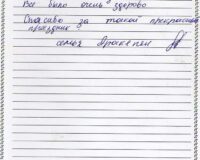 Все было очень здорово
Спасибо за такой прекрасный
праздник
семья